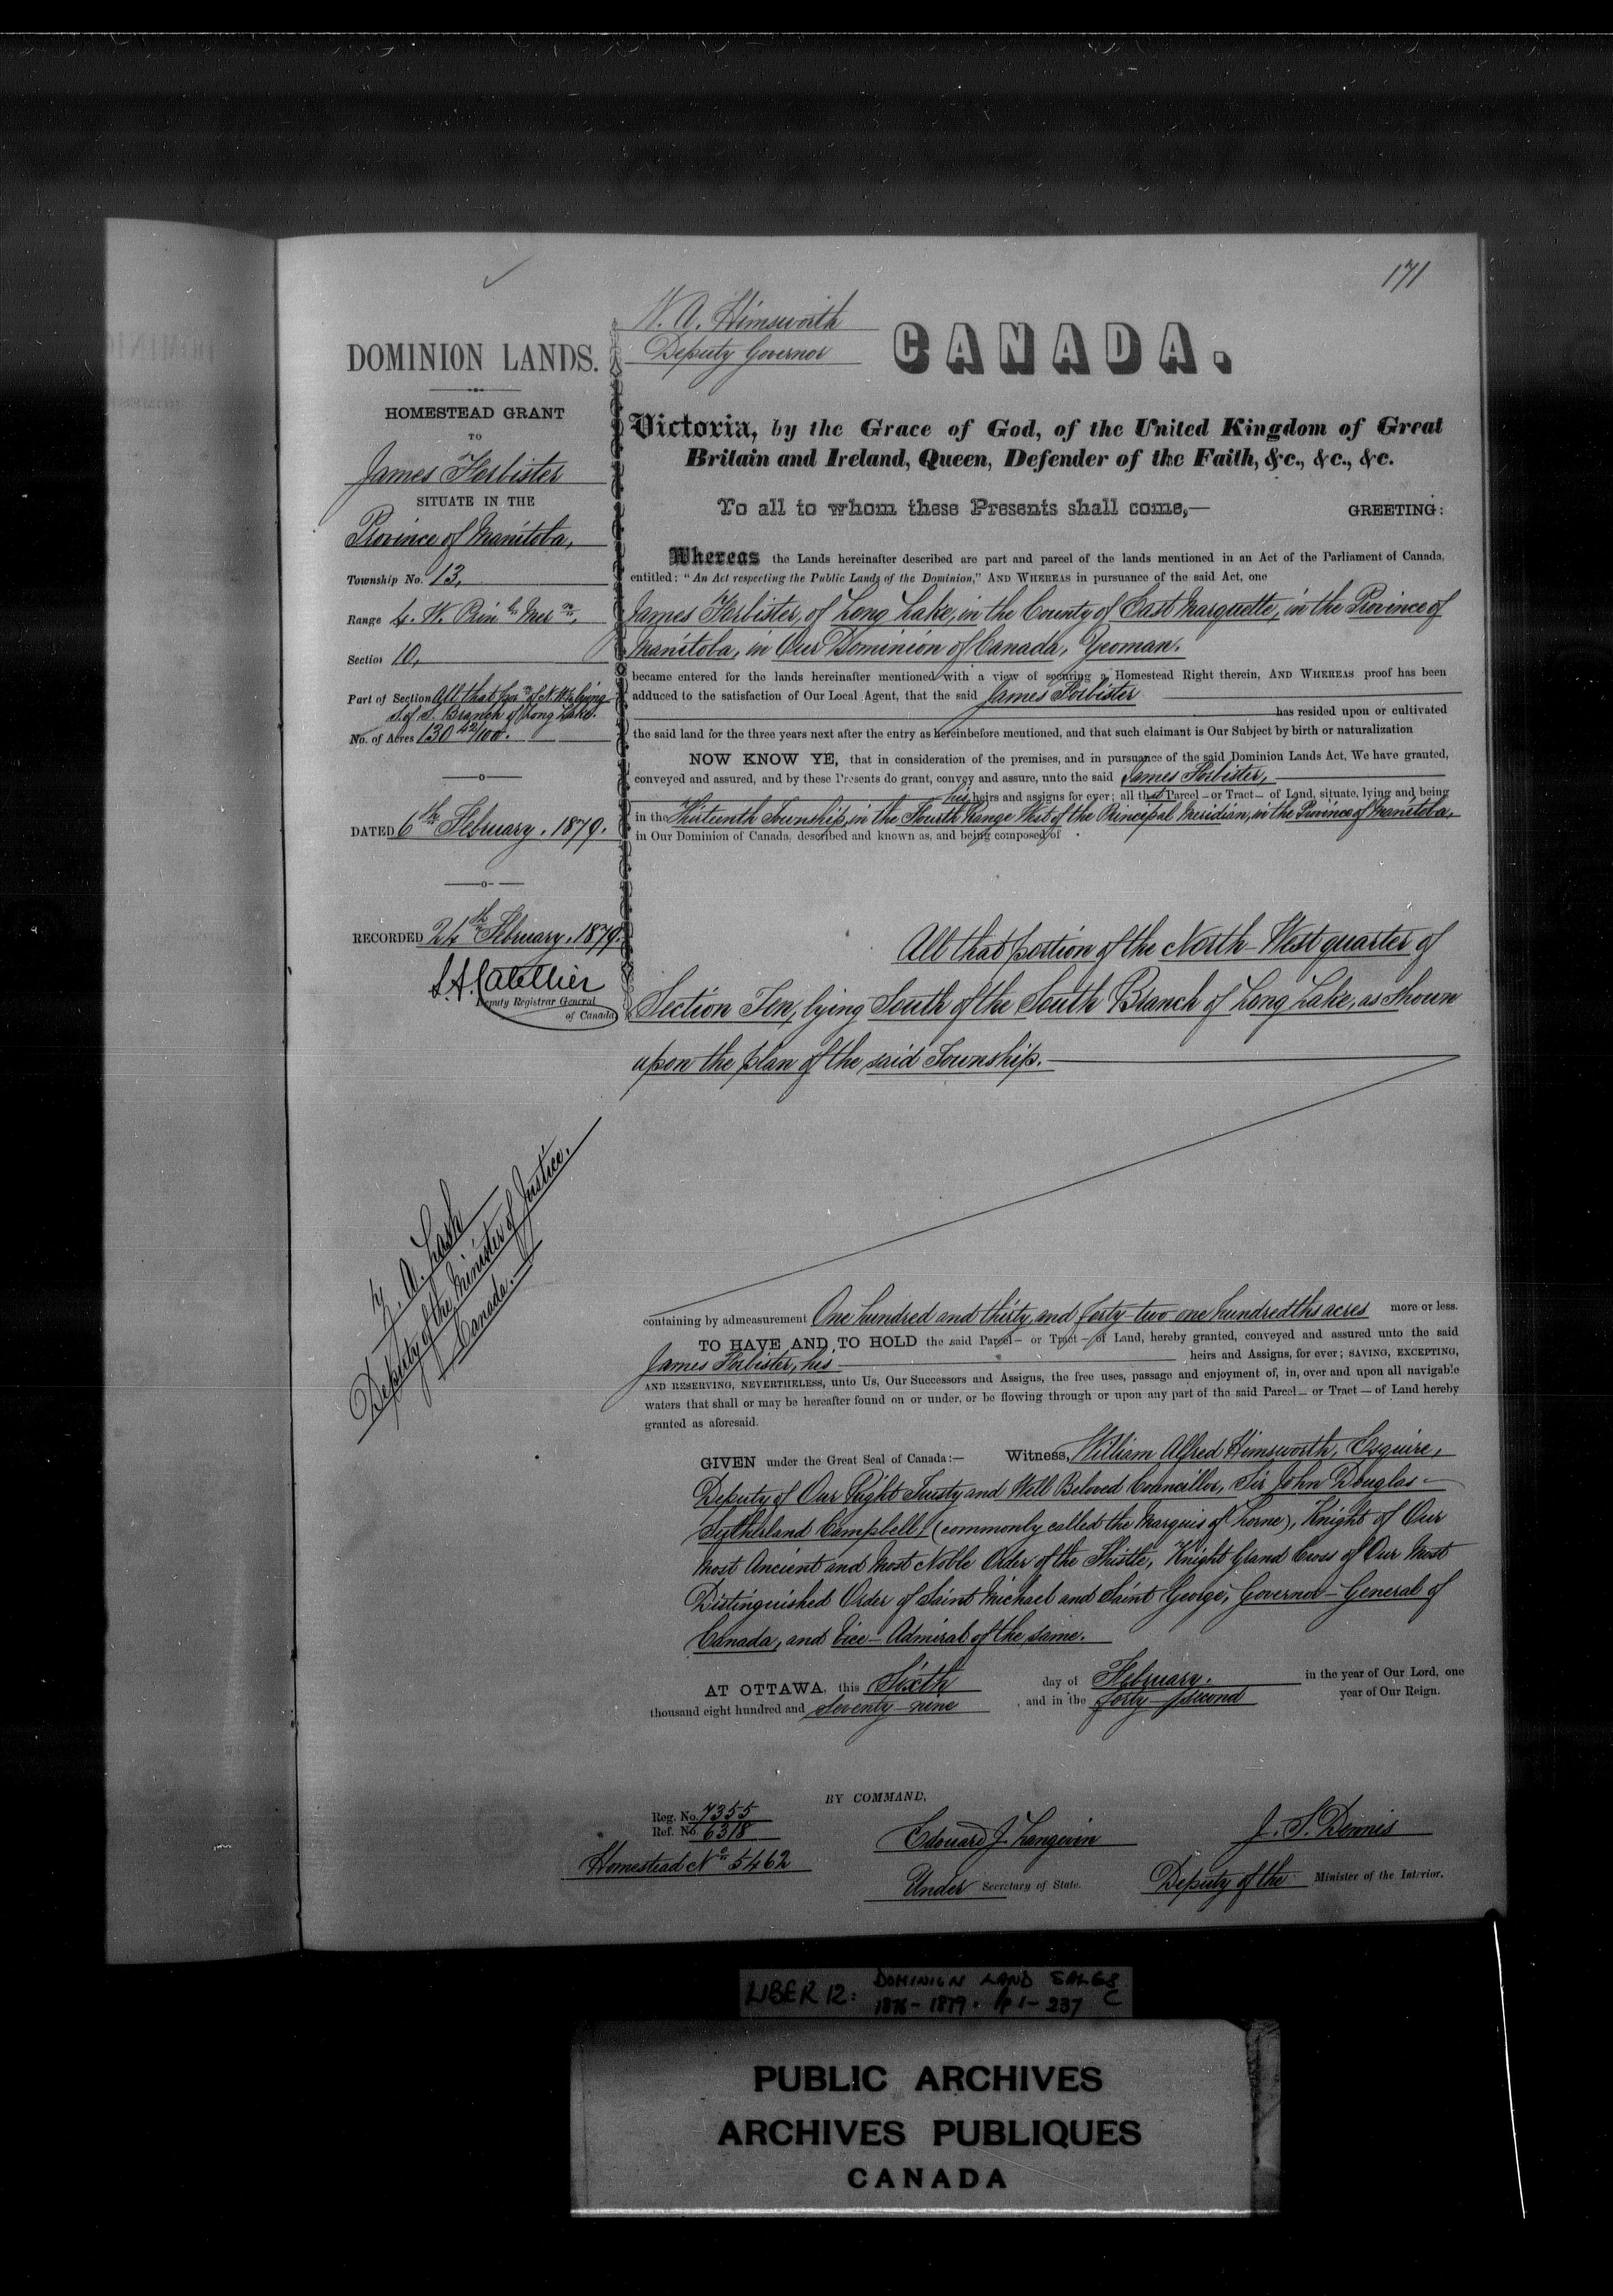 171
W. A. Himsworth
Deputy Governor
CANADA.
DOMINION LANDS.
HOMESTEAD GRANT
TO
James Forbister
SITUATE IN THE
Province of Manitoba,
Township No. 13,
Range 4. W. Prin l Mer n,
Section 10,
Part of Section All that por n of N.W.¼ lying
S. of S. Branch of Long Lake.
No. of Acres 130 42/100.
DATED 6th February, 1879.
RECORDED 24th February, 1879.
L.A. Catellier
Deputy Registrar General
of Canada
Z. A. Lash
Deputy of the Minister of Justice,
Canada.
Victoria, by the Grace of God, of the United Kingdom of Great
Britain and Ireland, Queen, Defender of the Faith, &c., &c., &c.
To all to whom these Presents shall come,— GREETING:
Whereas the Lands hereinafter described are part and parcel of the lands mentioned in an Act of the Parliament of Canada,
entitled: "An Act respecting the Public Lands of the Dominion," AND WHEREAS in pursuance of the said Act, one
James Forbister, of Long Lake, in the County of East Marquette, in the Province of
Manitoba, in Our Dominion of Canada, Yeoman.
became entered for the lands hereinafter mentioned with a view of securing a Homestead Right therein, AND WHEREAS proof has been
adduced to the satisfaction of Our Local Agent, that the said James Forbister
has resided upon or cultivated
the said land for the three years next after the entry as hereinbefore mentioned, and that such claimant is Our Subject by birth or naturalization
NOW KNOW YE, that in consideration of the premises, and in pursuance of the said Dominion Lands Act, We have granted,
conveyed and assured, and by these Presents do grant, convey and assure, unto the said James Forbister,
his heirs and assigns for ever; all that Parcel — or Tract — of Land, situate, lying and being
in the Thirteenth Township, in the Fourth Range West of the Principal Meridian, in the Province of Manitoba,
in Our Dominion of Canada, described and known as, and being composed of
All that portion of the North-West quarter of
Section Ten, lying South of the South Branch of Long Lake, as shown
upon the plan of the said Township.
containing by admeasurement One hundred and thirty, and forty-two one hundredths acres more or less.
TO HAVE AND TO HOLD the said Parcel — or Tract — of Land, hereby granted, conveyed and assured unto the said
James Forbister, his heirs and Assigns, for ever; SAVING, EXCEPTING,
AND RESERVING, NEVERTHELESS, unto Us, Our Successors and Assigns, the free uses, passage and enjoyment of, in, over and upon all navigable
waters that shall or may be hereafter found on or under, or be flowing through or upon any part of the said Parcel — or Tract — of Land hereby
granted as aforesaid.
GIVEN under the Great Seal of Canada:— Witness, William Alfred Himsworth, Esquire,
Deputy of Our Right Trusty and Well Beloved Councillor, Sir John Douglas
Sutherland Campbell, (commonly called the Marquis of Lorne), Knight of Our
Most Ancient and Most Noble Order of the Thistle, Knight Grand Cross of Our Most
Distinguished Order of Saint Michael and Saint George, Governor-General of
Canada, and Vice-Admiral of the same.
AT OTTAWA, this Sixth day of February. in the year of Our Lord, one
thousand eight hundred and seventy-nine, and in the forty-second year of Our Reign.
BY COMMAND,
Reg. No. 7355
Ref. No. 6318
Homestead No. 5462
Edouard J. Langevin
Under Secretary of State.
J. S. Dennis
Deputy of the Minister of the Interior.
LIBER 12: DOMINION LAND SALES
1876-1879. pp 1-237 C
PUBLIC ARCHIVES
ARCHIVES PUBLIQUES
CANADA